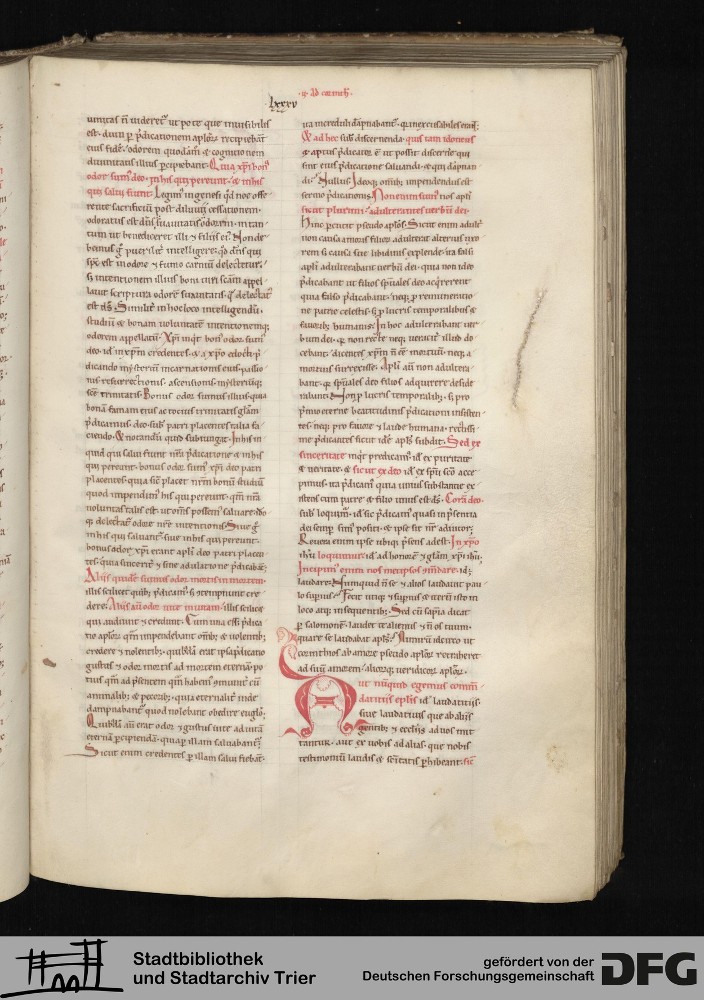 ·Ad corinth·
lxxxv
uinitas nn̄ uideret᷒ ut pote que inuisibilis
est. dum p̱ p̄dicationem aplōꝝ recipiebat
eius fidē. odorem quodām & cognitionem
diuinitatis illius p̱cipiebant. Quia xp̄i bon᷒
odor sum᷒ deo. in his qui pereunt. & in his
qui salui fiunt. Legim᷒ in genesi qd̄ noe offe
rente sacrificiū post diluuii cessationem
odoratus est dn̄s suauitatis odorem. in tan
tum ut benediceret illi & filiis ei᷒. Non de
bemus g᷒ puerilit̄ intelligere. qd̄ dn̄s qui
sp̄c est in odore & fumo carniū delectetur.
s; intentionem illius boni uiri
lauit scriptura odorē suauitatis. q̄ delectat᷒
est ds̄. Similit̄ in hoc loco intelligendū.
studiū & bonam uoluntatē intentionemq;
odorem appellari. Xp̄i inq̄t bon᷒ odor sum᷒
deo. id in xp̄m credentes. & a xp̄o edocti p̄
dicando mysteriū incarnationis eius. passio
nis resurrectionis. ascensionis. mysteriūq;
scē trinitatis. Bonus odor sumus illius. quia
bonā famam eius ac tocius trinitatis glām
p̄dicamus. deo. sub᷒ patri placentes talia fa
ciendo. & notandū quid subiungat. In his in
quid qui salui fiunt nr̄a p̄dicatione & in his
qui pereunt. bonus odor sum᷒ xp̄i deo patri
placentes. quia sic placet nr̄m bonū studiū
quod impendim᷒ his qui pereunt. qm̄ nr̄a
uoluntas talis est. ut om̄s possem᷒ saluare. ideo
q; delectat᷒ odore nr̄e intentionis. Siue g᷒
in his qui saluant᷒. siue in his qui pereunt.
bonus odor xp̄i erant apl̄i deo patri placen
tes. quia sincerit̄ & sine adulatione p̄dicabāt.
Aliis quidē sumus odor mortis in mortem.
illis scilicet quib; p̄dicam᷒. & contempnunt cre
dere. Aliis aū odor uite in uitam. illis scilicet
qui audiunt & credunt. Cum una eēt p̄dica
tio aplōꝝ qm̄ impendebant om̄ib; & uolentib;
credere & nolentib;. quib;dā erat ipsa p̄dicatio
gustus & odor mortis ad mortem eternā. po
tius qm̄ ad p̄sentem qm̄ habem᷒ cū
animalib; & pecorib;. quia eternalit̄ inde
dampnabant᷒ quod nolebant obedire euglō.
Quib;dā aū erat odor & gustus uite ad uitā
eternā p̱cipiendā. quia p̱ illam saluabant᷒.
Sicut enim credentes p̱ illam salui fiebant.
ita increduli dāpnabant᷒. q̄ inexcusabiles erāt.
Et ad hec sub᷒ discernenda. quis tam idoneus
& aptus p̄dicator ē. ut possit discernere qui
sint eius p̄dicatione saluandi. & qui dāpnan
di. Nullus. Ideoq; om̄ib; impendendus est
sermo p̄dicationis. Non enim sum᷒ nos apl̄i
sicut plurimi. adulterantes uerbū dei.
Hinc p̱cutit pseudo aplōs. Sicut enim adult̄
non causa amoris filioꝝ adulterat alterius uxo
rem. s; causa sue libidinis explende. ita falsi
apl̄i adulterabant uerbū dei. quia non ideo
p̄dicabant ut filios sp̄uales deo acq̄rerent
quia falso p̄dicabant. neq; p̱ remuneratio
ne patrie celestis. s; p̱ lucris temporalibus &
fauorib; humanis. In hoc adulterabant uer
bum dei. q̄ non recte neq; ueracit̄ illud do
cebant. dicentes xp̄m n̄ eē mortuū. neq; a
mortuis surrexisse. Apl̄i aū non adultera
bant. q̄ sp̄uales deo filios adquirere deside
rabant. Non p̱ lucris temporalib;. s; pro
p̄mio eterne beatitudinis p̄dicationi insisten
tes. neq; pro fauore & laude humana. rectissi
me p̄dicantes. sicut idē apl̄s subdit. Sed ex
sinceritate inq̄t predicam᷒ id ex puritate
& ueritate. & sicut ex deo id ex sp̄u scō acce
pimus. ita p̄dicam᷒ quia unius substantie ex
istens cum patre & filio unus est ds̄. Corā deo.
sub᷒ loquim᷒. id sic p̄dicam᷒ quasi in p̄sentia
dei semp̱ sim᷒ positi. & ipse sit nr̄ adiutor.
Reuera enim ipse ubiq; p̄sens adest. In xpō
ih̄u loquimur. id ad honorē & glām xp̄i ih̄u.
Incipim᷒ enim nos metipsos cōmdare. id;
laudare. Nunquid n̄ se & alios laudauit pau
lo superius. Fecit utiq; & supius & iterū isto in
loco atq; in sequentib;. Sed cū sapīa dicat
p̱ salomonē. laudet te alienus. & n̄ os tuum.
quare se laudabat apl̄s? Nimirū ideirco ut
corinthios ab amore pseudo aplōꝝ retraheret
ad suū amorem. alioꝝq; ueridicoꝝ aplōꝝ.
Aut nunquid egemus comm̄
datitiis eplīs id laudatiuis.
siue laudatiuis que ab aliis
gentib; & ecclīis ad nos mit
tantur. aut ex uobis ad alias. que nobis
testimoniū laudis & scītatis p̱hibeant. sic̄
Stadtbibliothek
und Stadtarchiv Trier
gefördert von der
Deutschen Forschungsgemeinschaft
DFG